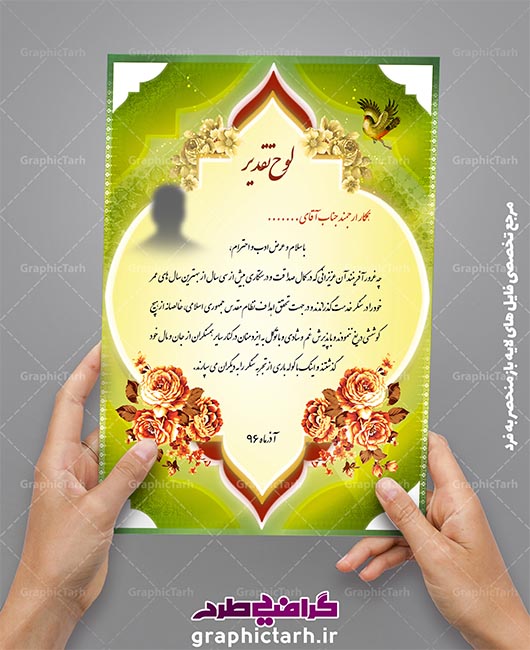 GraphicTarh
لوح تقدیر
همکار ارجمند جناب آقای.......
با سلام و عرض ادب و احترام،
چه غرورآفرینند آن عزیزانی که در کمال صداقت و درستکاری بیش از سی سال از بهترین سال های عمر
خود را در سنگر خدمت گذراندند و در جهت تحقق اهداف نظام مقدس جمهوری اسلامی، خالصانه از هیچ
کوششی دریغ ننمودند و با پذیرش غم و شادی و با توکل به ایزد منان در کنار سایر همسنگران از جان و مال خود
گذشتند و اینک با کوله باری از تجربه سنگر را به دیگران می سپارند.
آذر ماه ۹۶
مرجع تخصصی فایل های لایه باز منحصر به فرد
گرافیک طرح
graphictarh.ir